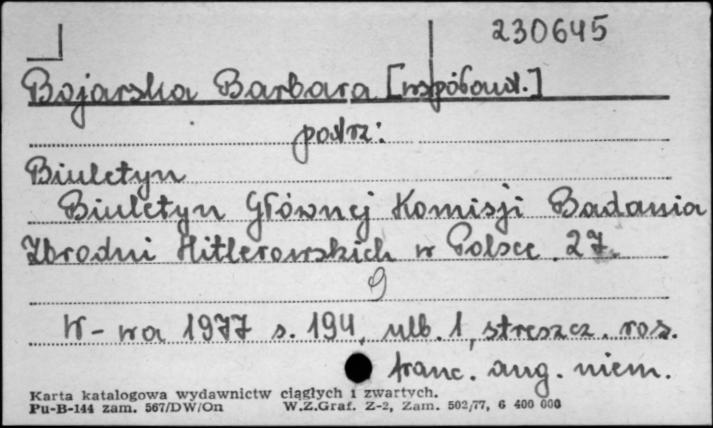 230645
Bojarska Barbara [współaut.]
patrz:
Biuletyn
Biuletyn Głównej Komisji Badania
Zbrodni Hitlerowskich w Polsce. 27.
W-wa 1977 s. 194, ulb. 1, streszcz. ros.
franc. ang. niem.
Karta katalogowa wydawnictw ciągłych i zwartych.
Pu-B-144 zam. 567/DW/On W.Z.Graf. Z-2, Zam. 502/77, 6 400 000